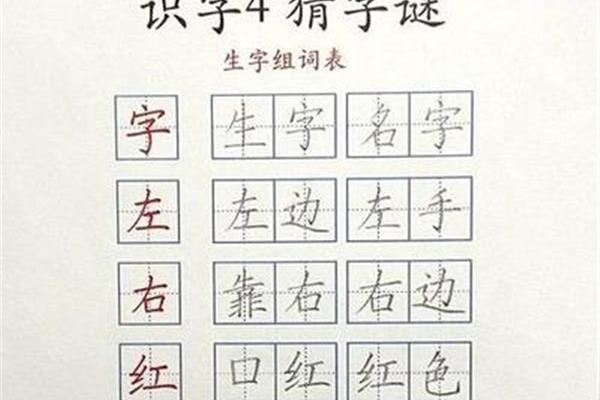 识字4 猜字谜
生字组词表
字 生字 名字
左 左边 左手
右 靠右 右边
红 口红 红色